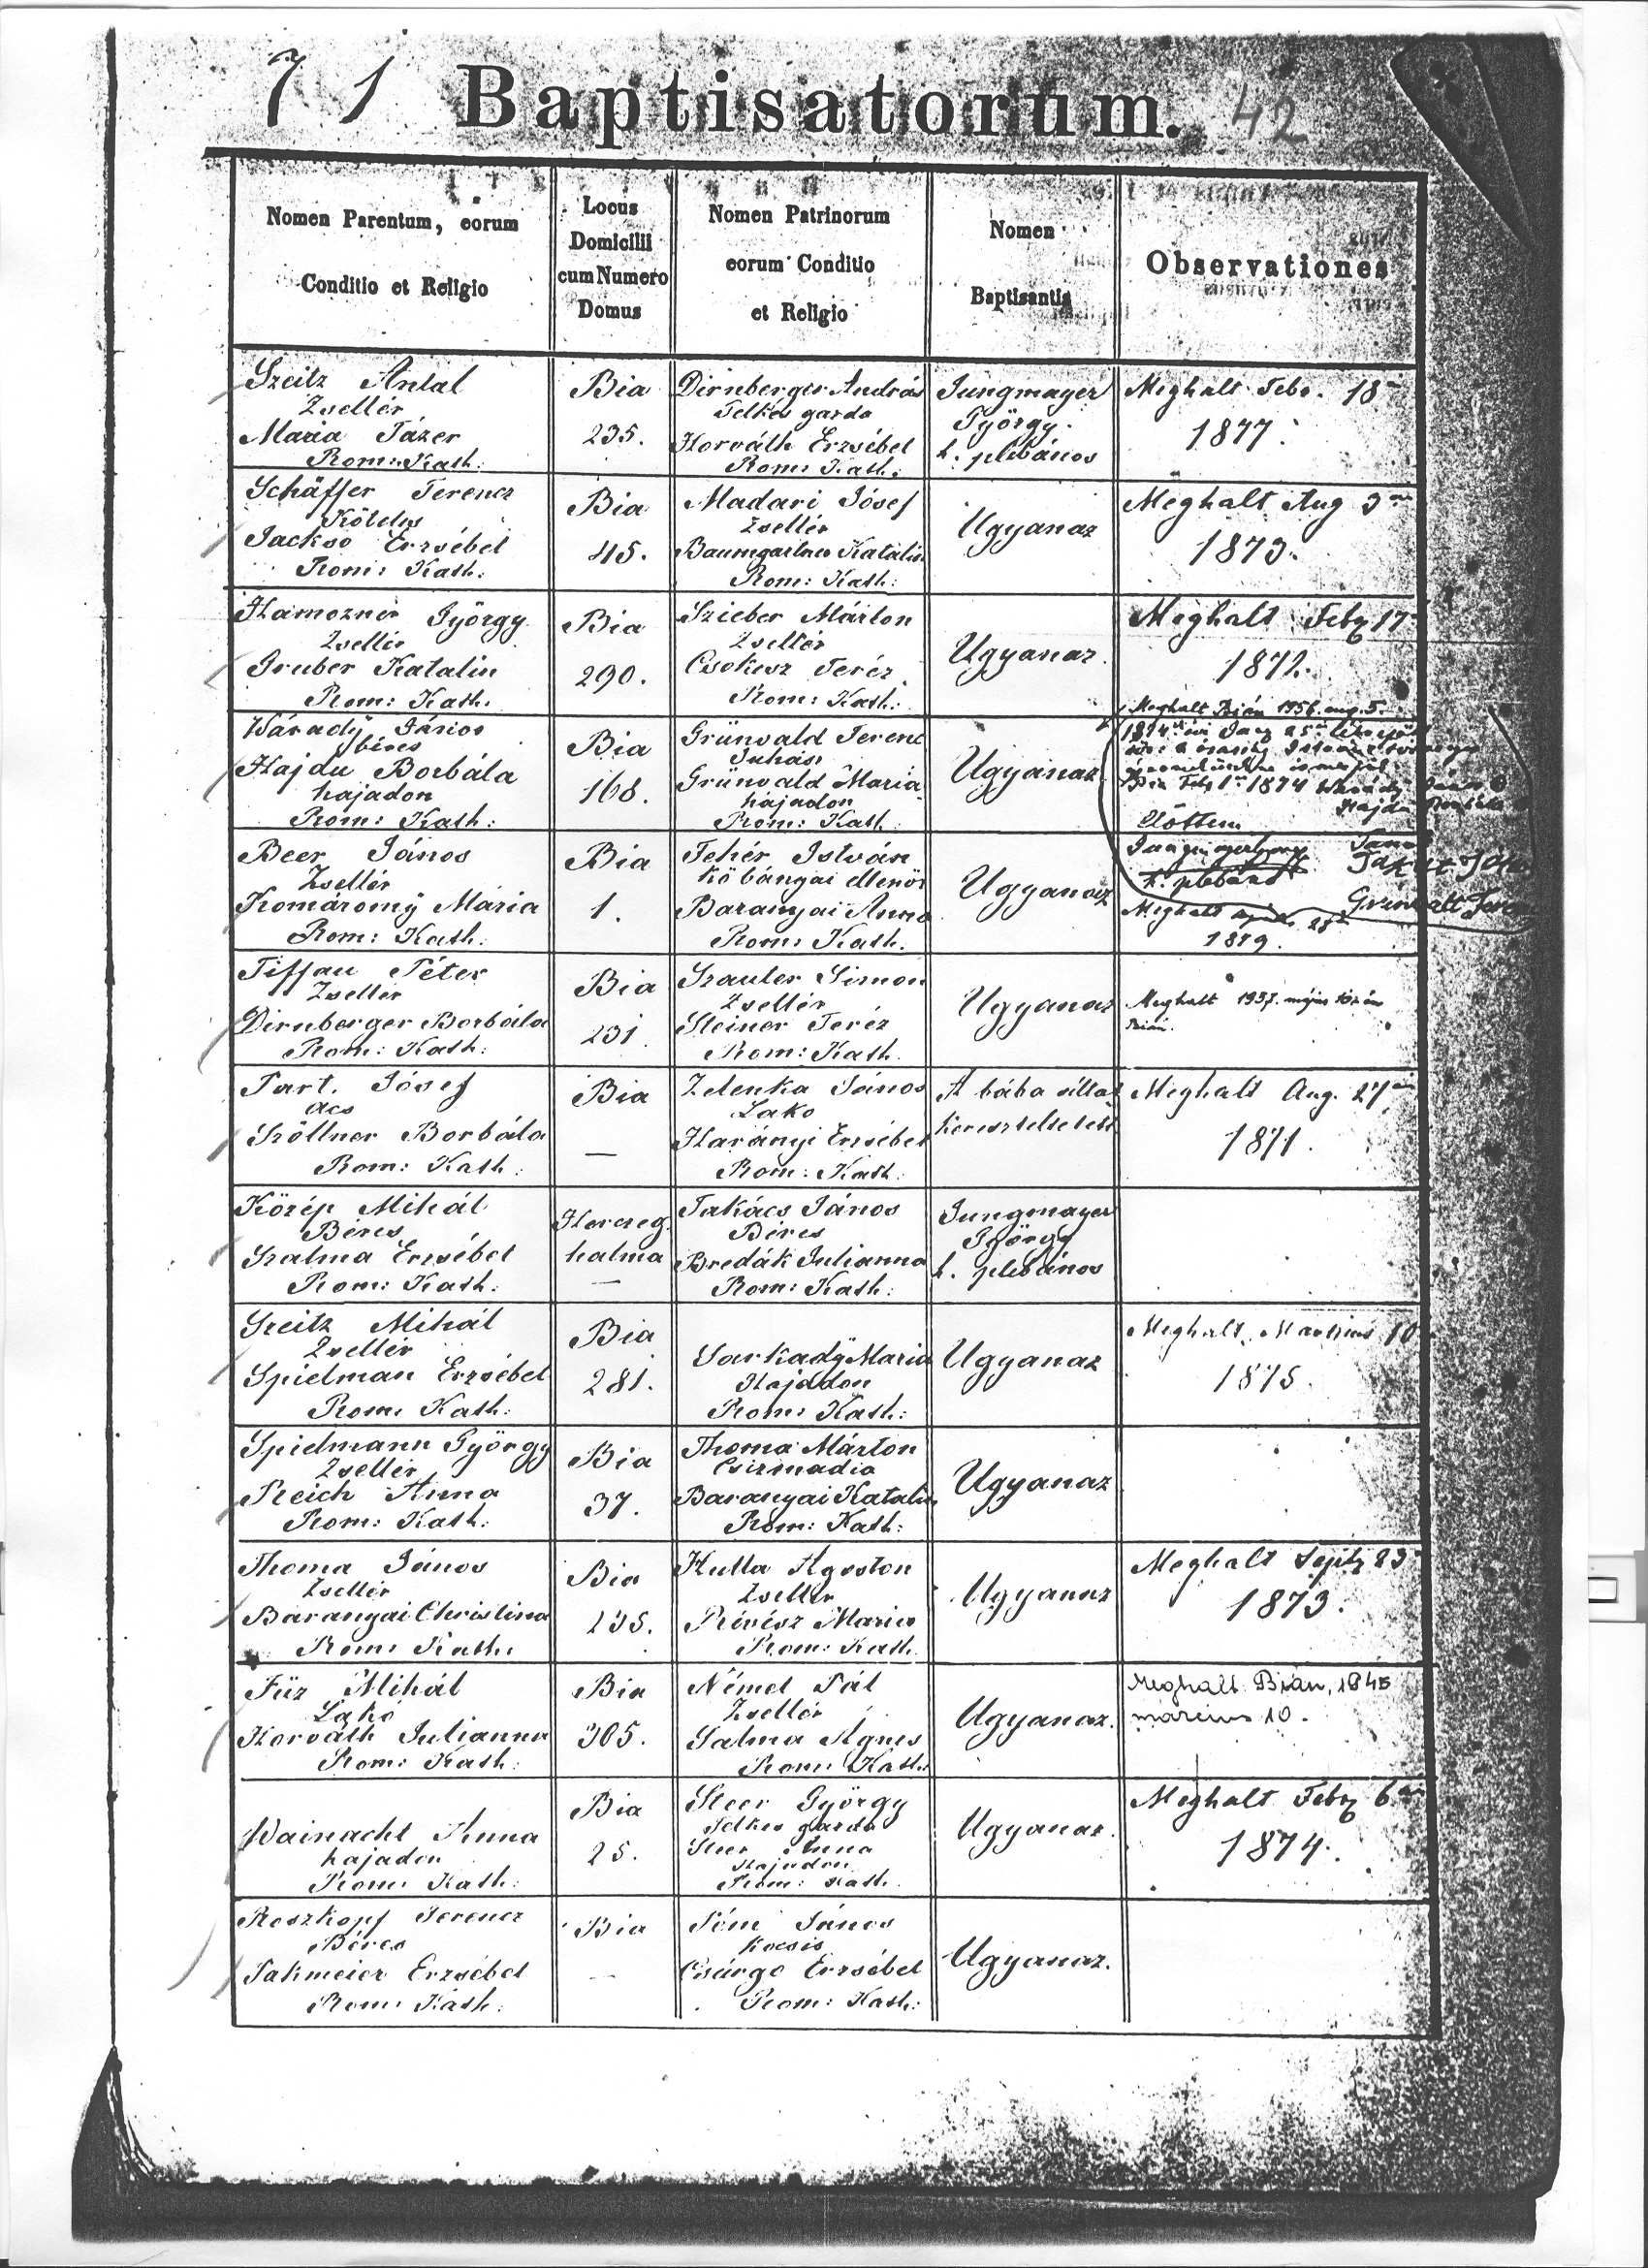 71 Baptisatorum. 42
Nomen Parentum, eorum
Conditio et Religio
Locus
Domicilii
cum Numero
Domus
Nomen Patrinorum
eorum Conditio
et Religio
Nomen
Baptisantis
Observationes
Szeitz Antal
Zsellér
Maria Pázer
Rom: Kath:
Bia
235.
Dirnberger András
Telkes gazda
Horváth Erzsébet
Rom: Kath:
Jungmayer
György
h. plébános
Meghalt Febr. 18
1877.
Schäffer Ferencz
Jackso Erzsébet
Rom: Kath:
Bia
45.
Madari Jósef
Zsellér
Baumgartner Katalin
Rom: Kath:
Ugyanaz
Meghalt Aug 3
1873.
György
Zsellér
Gruber Katalin
Rom: Kath.
Bia
290.
Szieber Márton
Zsellér
Teréz
Rom: Kath:
Ugyanaz
Meghalt Feb 17
1872.
Várady János
béres
Hajdu Borbála
hajadon
Rom: Kath:
Bia
168.
Grünvald Ferenc
Juhász
Grünvald Maria
hajadon
Rom: Kath
Ugyanaz
Meghalt Bián 1956. aug. 5.
Bia Feb 1 1874 Várady János
Hajdu Borbála
Előttem
h. plébános
Beer János
Zsellér
Komáromÿ Mária
Rom: Kath:
Bia
1.
Fehér István
Köbányai ellenör
Baranyai Anna
Rom: Kath.
Ugyanaz
Meghalt 28
1879.
Tiffau Péter
Zsellér
Dirnberger Borbála
Rom: Kath:
Bia
231
Szauter Simon
Zsellér
Steiner Teréz
Rom: Kath.
Ugyanaz
Meghalt 1937. május
Bián.
Part. Jósef
ács
Szöllner Borbála
Rom: Kath:
Bia
—
Zelenka János
Lako
Harányi Erzsébet
Rom: Kath:
A bába által
kereszteltetett
Meghalt Aug. 27
1871.
Közép Mihál
Béres
Szalma Erzsébet
Rom: Kath:
Herczeg
halma
—
Takács János
Béres
Bredák Julianna
Rom: Kath:
Jungmayer
György
h. plébános
Szeitz Mihál
Zsellér
Spielman Erzsébet
Rom: Kath:
Bia
281.
Sarkadÿ Maria
Hajadon
Rom: Kath:
Ugyanaz
Meghalt Martius 10
1875.
Spielmann György
Zsellér
Reich Anna
Rom: Kath:
Bia
37.
Thoma Márton
Csizmadia
Baranyai Katalin
Rom: Kath:
Ugyanaz
Thoma János
Zsellér
Baranyai Christina
Rom: Kath:
Bia
235.
Hutta Agoston
Zsellér
Révész Maria
Rom: Kath
Ugyanaz
Meghalt Sept 23
1873.
Füz Mihál
Lakó
Horváth Julianna
Rom: Kath:
Bia
305.
Német Pál
Zsellér
Salma Agnes
Rom: Kath:
Ugyanaz.
Meghalt Bián, 1945
március 10.
Wainacht Anna
hajadon
Rom: Kath:
Bia
25.
Steer György
Telkes gazda
Steer Anna
Hajadon
Rom: Kath.
Ugyanaz.
Meghalt Feb 6
1874.
Roszkopf Ferencz
Béres
Pakmeier Erzsébet
Rom: Kath:
Bia
—
János
Kocsis
Csürgo Erzsébet
Rom: Kath:
Ugyanaz.